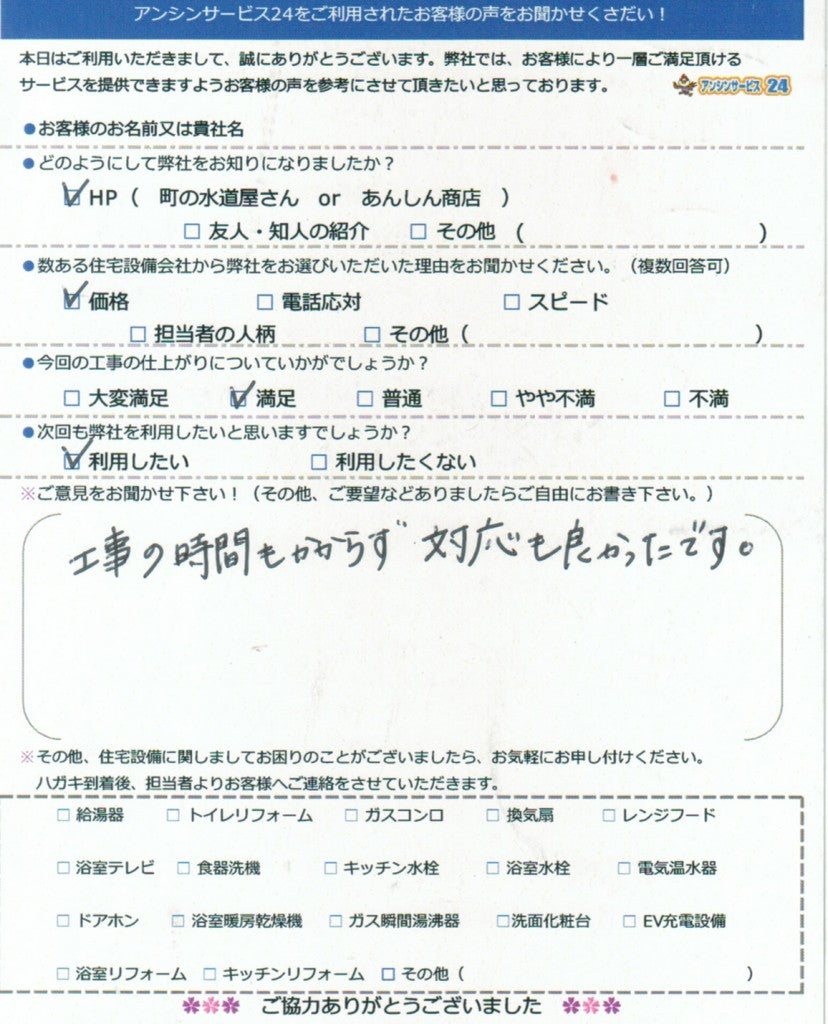 アンシンサービス24をご利用されたお客様の声をお聞かせくさだい！
本日はご利用いただきまして、誠にありがとうございます。弊社では、お客様により一層ご満足頂ける
サービスを提供できますようお客様の声を参考にさせて頂きたいと思っております。 アンシンサービス24
●お客様のお名前又は貴社名
●どのようにして弊社をお知りになりましたか？
☑HP（ 町の水道屋さん or あんしん商店 ）
□ 友人・知人の紹介 □ その他 （ ）
●数ある住宅設備会社から弊社をお選びいただいた理由をお聞かせください。（複数回答可）
☑価格 □ 電話応対 □ スピード
□ 担当者の人柄 □ その他（ ）
●今回の工事の仕上がりについていかがでしょうか？
□ 大変満足 ☑満足 □ 普通 □ やや不満 □ 不満
●次回も弊社を利用したいと思いますでしょうか？
☑利用したい □ 利用したくない
※ご意見をお聞かせ下さい！（その他、ご要望などありましたらご自由にお書き下さい。）
工事の時間もかからず 対応も良かったです。
※その他、住宅設備に関しましてお困りのことがございましたら、お気軽にお申し付けください。
ハガキ到着後、担当者よりお客様へご連絡をさせていただきます。
□ 給湯器 □ トイレリフォーム □ ガスコンロ □ 換気扇 □ レンジフード
□ 浴室テレビ □ 食器洗機 □ キッチン水栓 □ 浴室水栓 □ 電気温水器
□ ドアホン □ 浴室暖房乾燥機 □ ガス瞬間湯沸器 □洗面化粧台 □ EV充電設備
□ 浴室リフォーム □ キッチンリフォーム □ その他（ ）
ご協力ありがとうございました